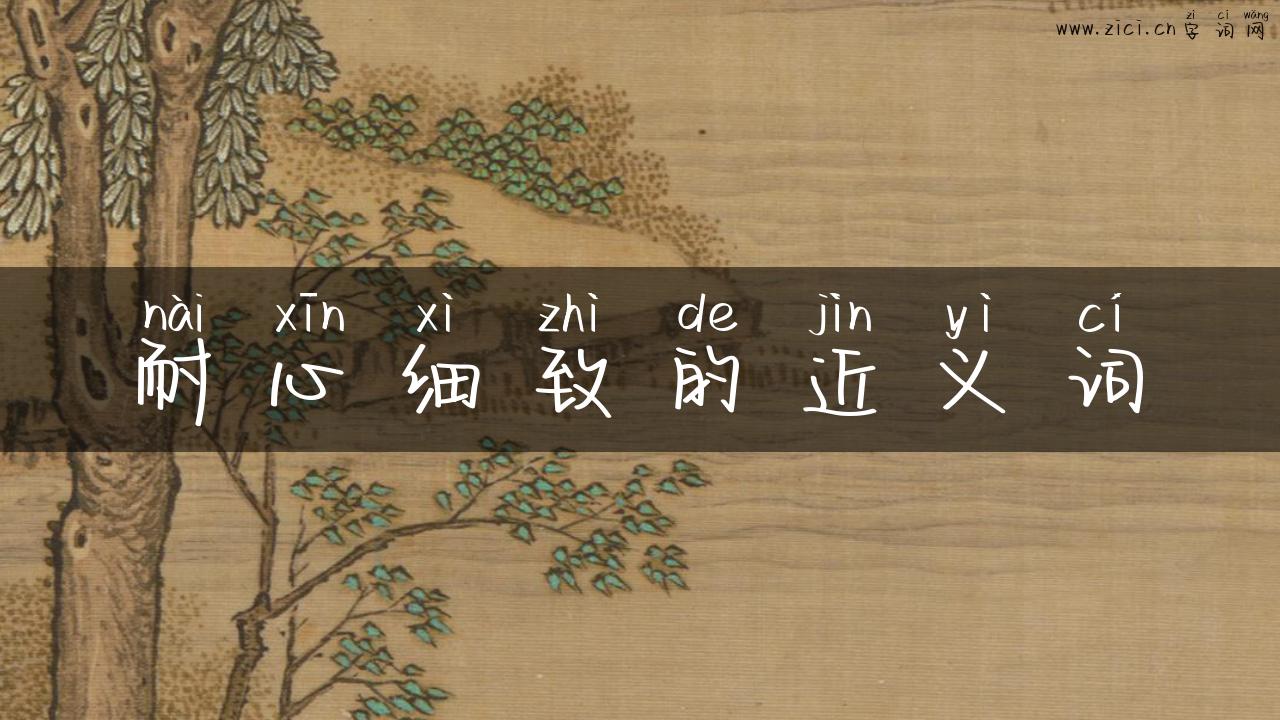 www.zici.cn zì cí wǎng 字词网
nài xīn xì zhì de jìn yì cí
耐心细致的近义词